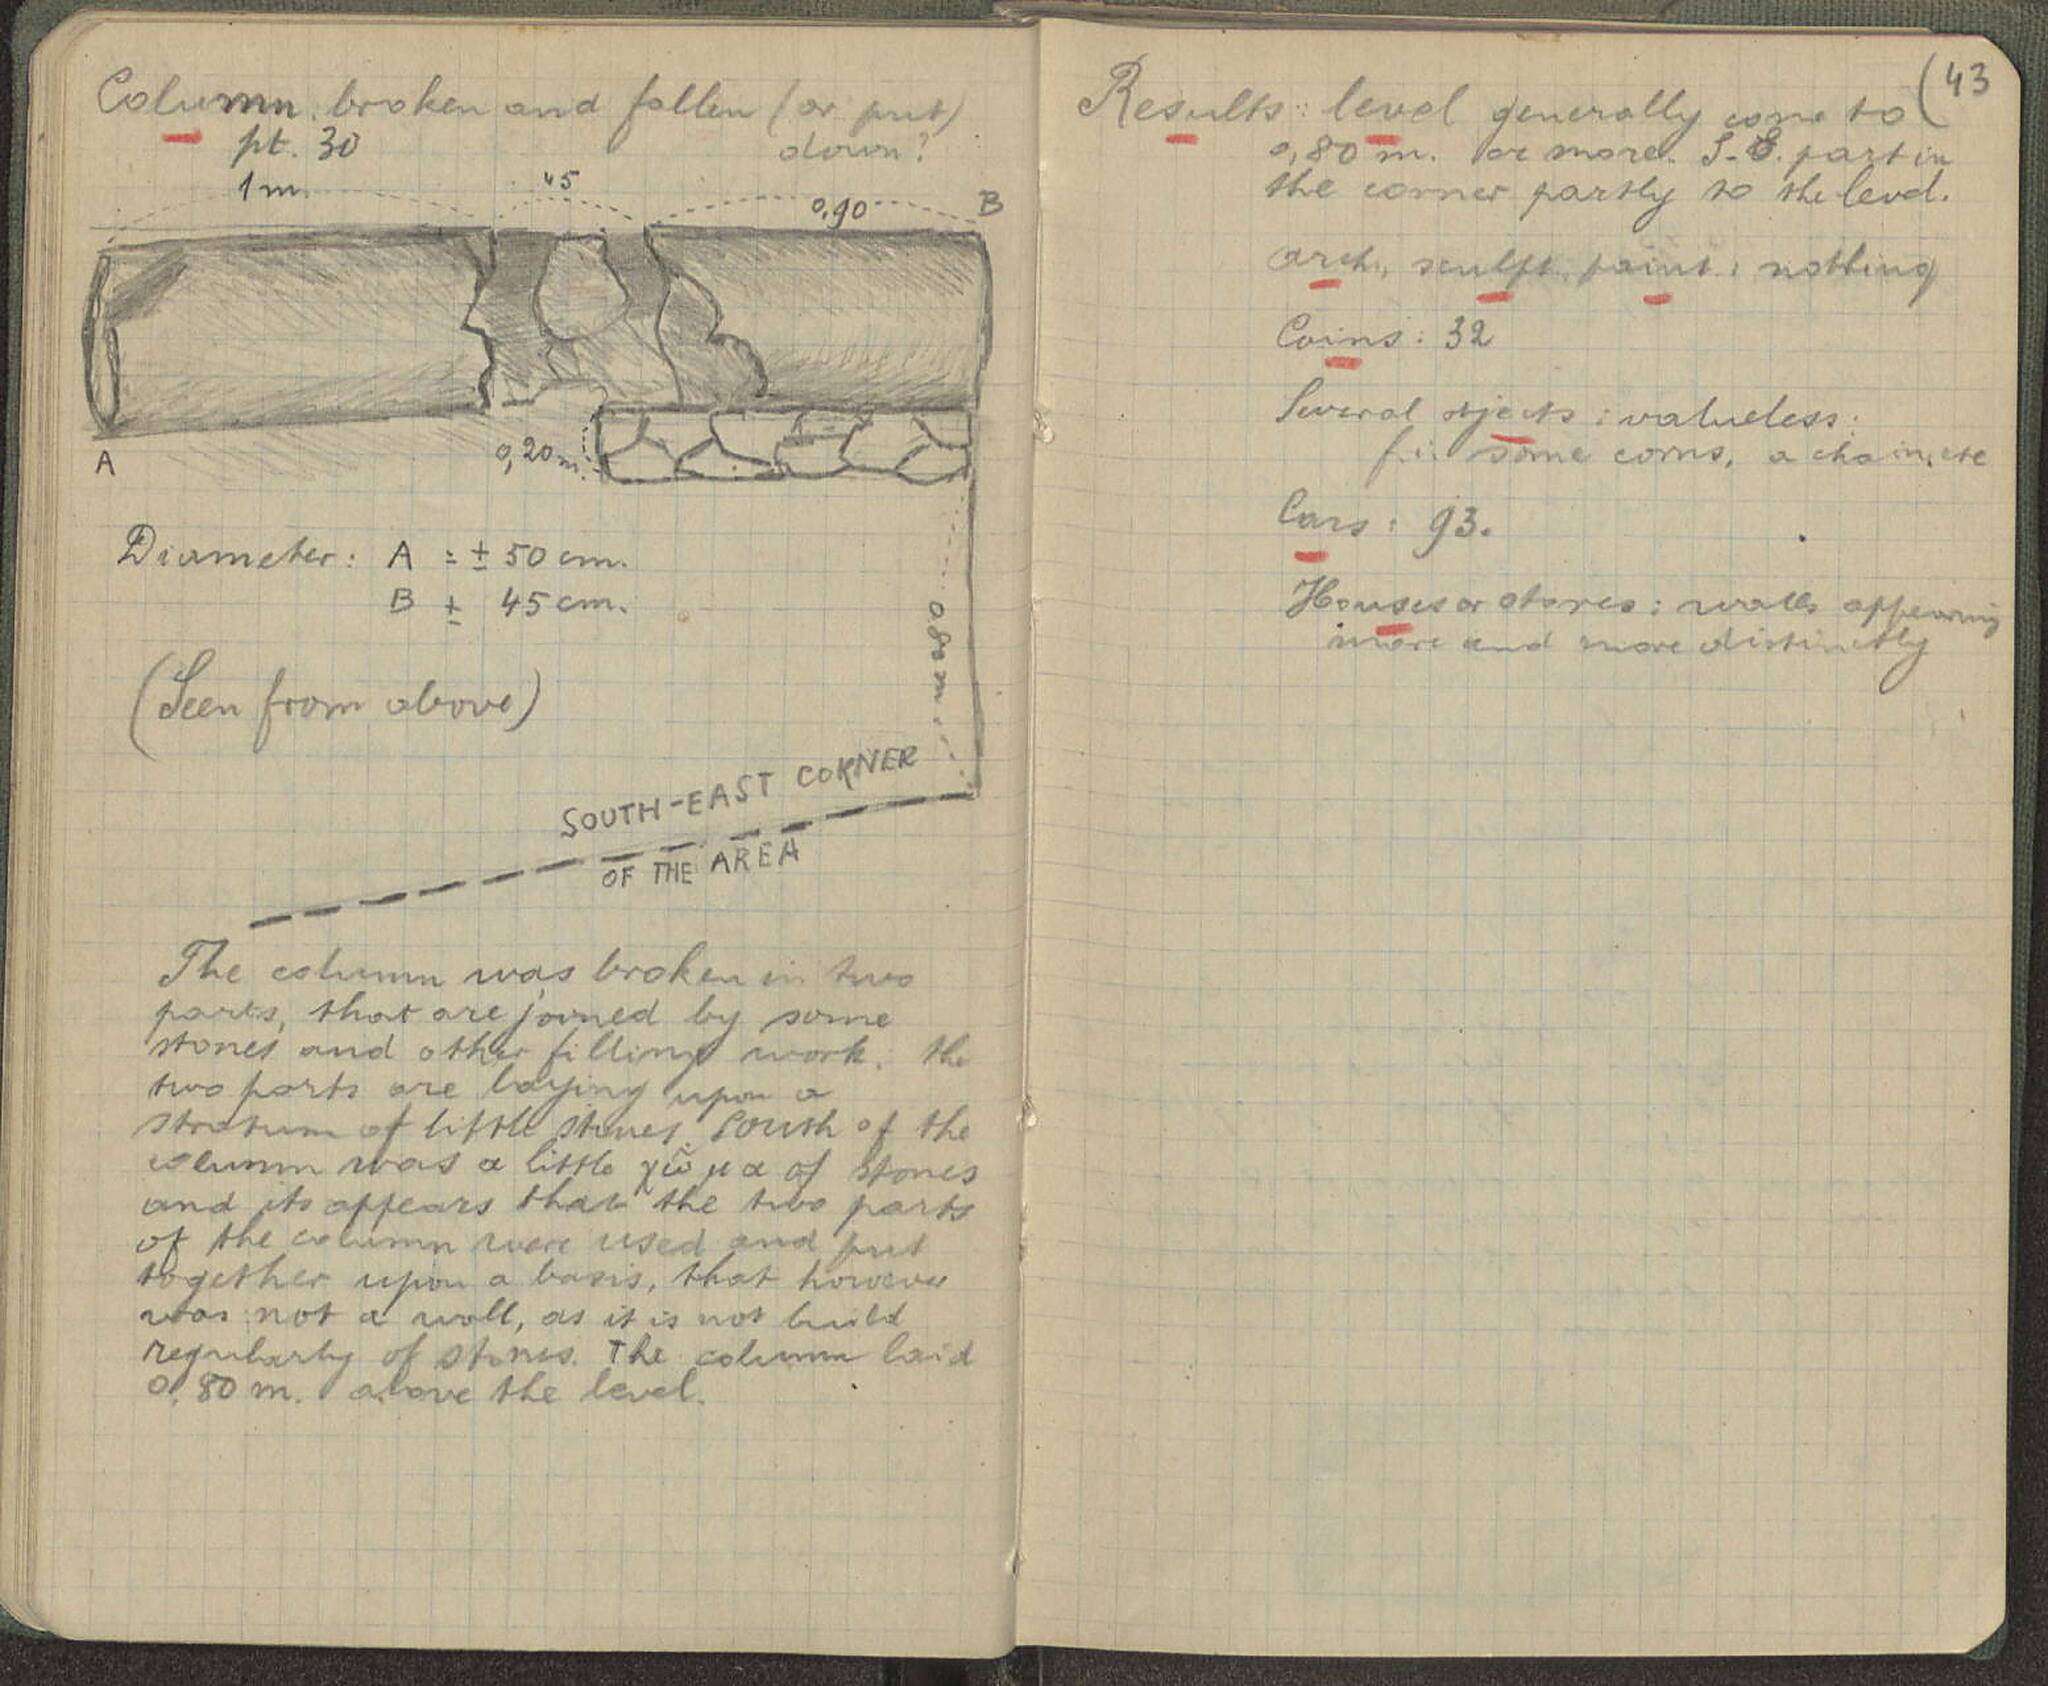 Column: broken and fallen (or put)
down?
pt. 30
1 m.
45
0,90
B
A
0,20 m.
Diameter: A = ± 50 cm.
B ± 45 cm.
0.80 m.
(Seen from above)
SOUTH-EAST CORNER
OF THE AREA
The column was broken in two
parts, that are joined by some
stones and other filling work. the
two parts are laying upon a
stratum of little stones. South of the
column was a little χῶμα of stones
and its appears that the two parts
of the column were used and put
together upon a basis, that however
was not a wall, as it is not build
regularly of stones. The column laid
0.80 m. above the level.
(43
Results: level generally come to
0,80 m. or more. S-E. part in
the corner partly to the level.
arch., sculpt, paint: nothing
Coins: 32
Several objects: valueless:
f.i. some coins, a chain, etc
Cars: 93.
Houses or stores: walls appearing
more and more distinctly